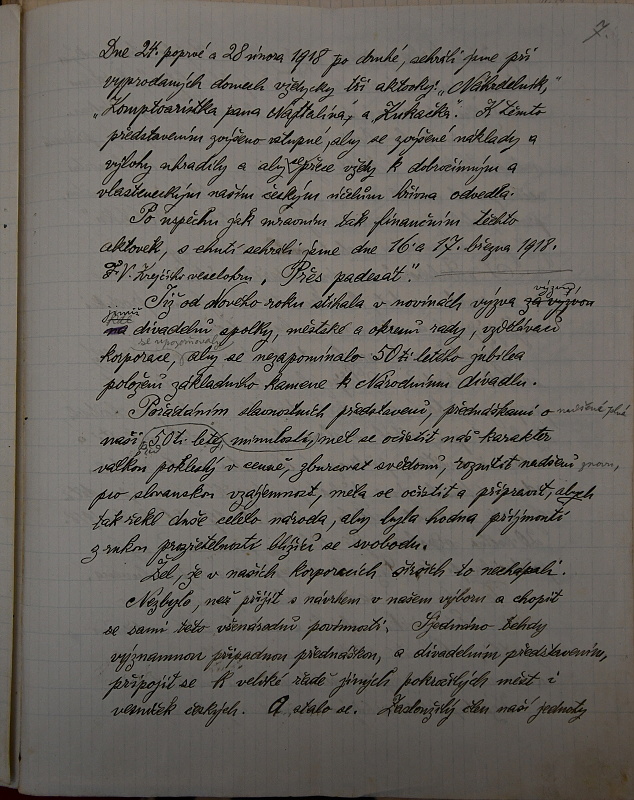 7.
Dne 24. poprvé a 28 února 1918 po druhé, sehráli jsme při
vyprodaných domech vždycky tři aktovky: „Náhrdelník,"
„Komptoaristka pana Naftalína, a „Kukačka". K těmto
představením zvýšeno vstupné, aby se zvýšené náklady a
výlohy uhradily a aby se přece vždy k dobročinným a
vlasteneckým našim českým účelům hřivna odvedla.
Po úspěchu jak mravním tak finančním těchto
aktovek, s chutí sehráli jsme dne 16 a 17. března 1918.
F. V. Krejčího veselohru „Přes padesát".
Již od nového roku stíhala v novinách výzva za výzvou
výzvu,
jimiž
na divadelní spolky, městské a okresní rady, vzdělávací
se upozorňovaly
korporace, aby se nezapomínalo 50 ti letého jubilea
položení základního kamene k Národnímu divadlu.
Pořádáním slavnostních představení, přednáškami o
naší 50 ti leté minulosti, měl se očistit náš karakter
válkou pokleslý v cenně, zburcovat svědomí, roznítit nadšení znovu,
pro slovanskou vzájemnost, měla se očistit a připravit, abych
tak řekl duše celého národa, aby byla hodna přijmouti
z rukou prozřetelnosti blížící se svobodu.
Žel, že v našich korporacích širších to nechápali.
Nezbylo, než přijít s návrhem v našem výboru a chopit
se sami této všenárodní povinnosti. Sjednáno tehdy
významnou případnou přednáškou, a divadelním představením,
připojit se k veliké řadě jiných pokročilých měst i
vesniček českých. A stalo se. Zasloužilý člen naší jednoty